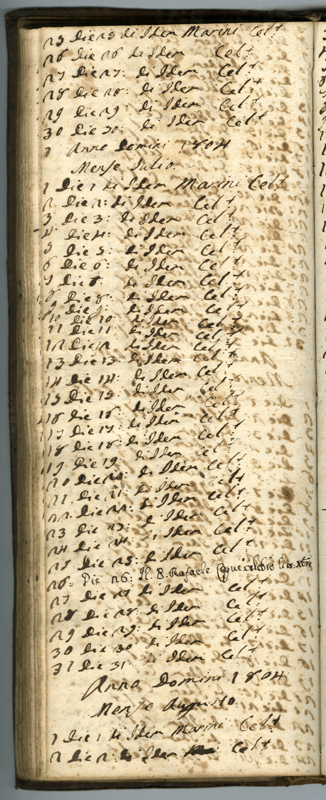 25 Die 25 di Idem Marini Celt
26 Die 26 di Idem Celt
27 Die 27: di Idem Celt
28 Die 28: di Idem Celt
29 Die 29: di Idem Celt
30 Die 30: di Idem Celt
Anno Domini 1804
Mense Julio
1 Die 1 di Idem Marini Celt
2 Die 2: di Idem Celt
3 Die 3: di Idem Celt
4 Die 4: di Idem Celt
5 Die 5: di Idem Celt
6 Die 6: di Idem Celt
Die di Idem Celt
Die 8: di Idem Celt
Die di Idem Celt
10 Die 10: di Idem Celt
11 Die 11: di Idem Celt
12 Die 12 di Idem Celt
13 Die 13: di Idem Celt
14 Die 14: di Idem Celt
15 Die 15 di Idem Celt
16 Die 16: di Idem Celt
17 Die 17: di Idem Celt
18 Die 18: di Idem Celt
19 Die 19 di Idem Celt
20 Die 20: di Idem Celt
21 Die 21: di Idem Celt
22 Die 22: di Idem Celt
23 Die 23: di Idem Celt
24 Die 24: di Idem Celt
25 Die 25: di Idem Celt
26: Die 26: Rafaele
27 Die 27 di Idem Celt
28 Die 28: di Idem Celt
29 Die 29: di Idem Celt
30 Die 30 di Idem Celt
31 Die 31 di Idem Celt
Anno Domini 1804
Mense Augusto
1 Die 1 di Idem Marini Celt
2 Die 2: di Idem Celt